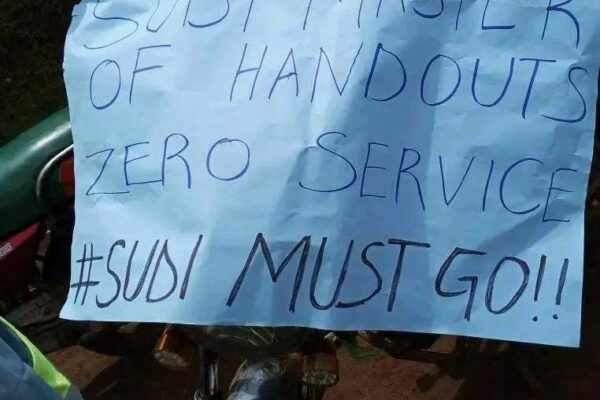 SUDI MASTER
OF HANDOUTS
ZERO SERVICE
#SUDI MUST GO!!